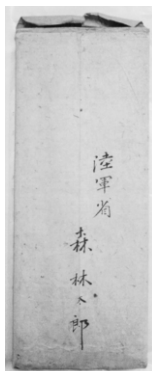 陸軍省
森林太郎